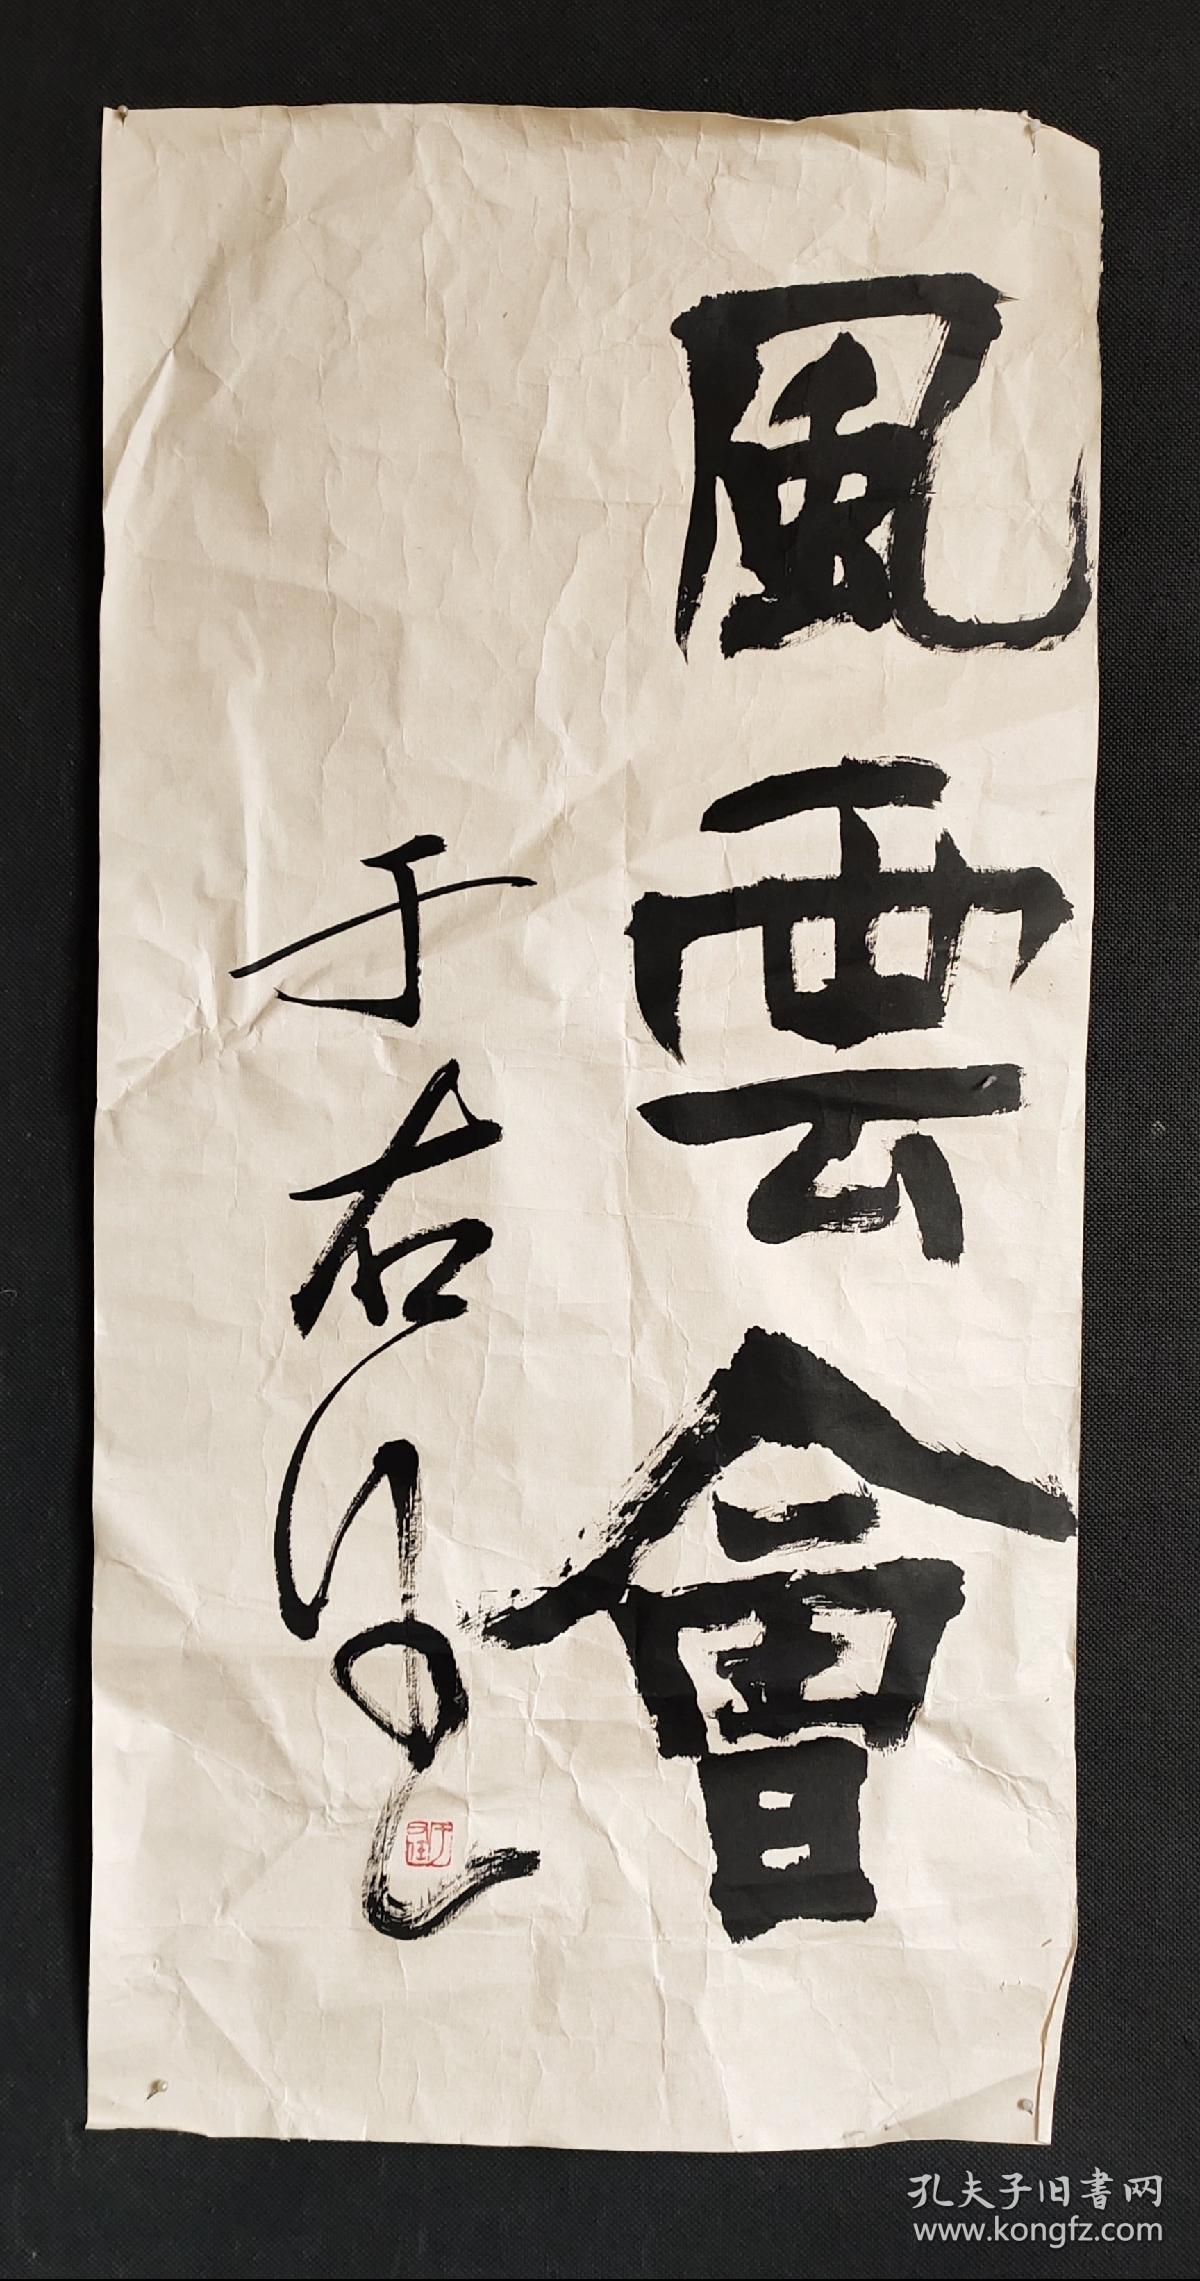 風雲會
于右任
孔夫子旧書网
www.kongfz.com